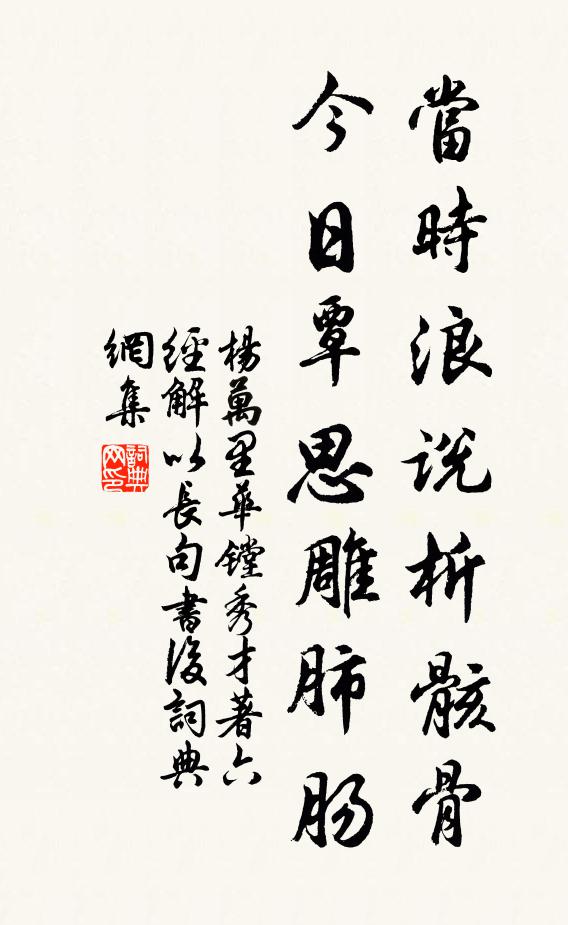 當時浪说析骸骨
今日覃思雕肺肠
楊萬里華鏜秀才著六
經解以長句書後詞典
網集
詞典網印